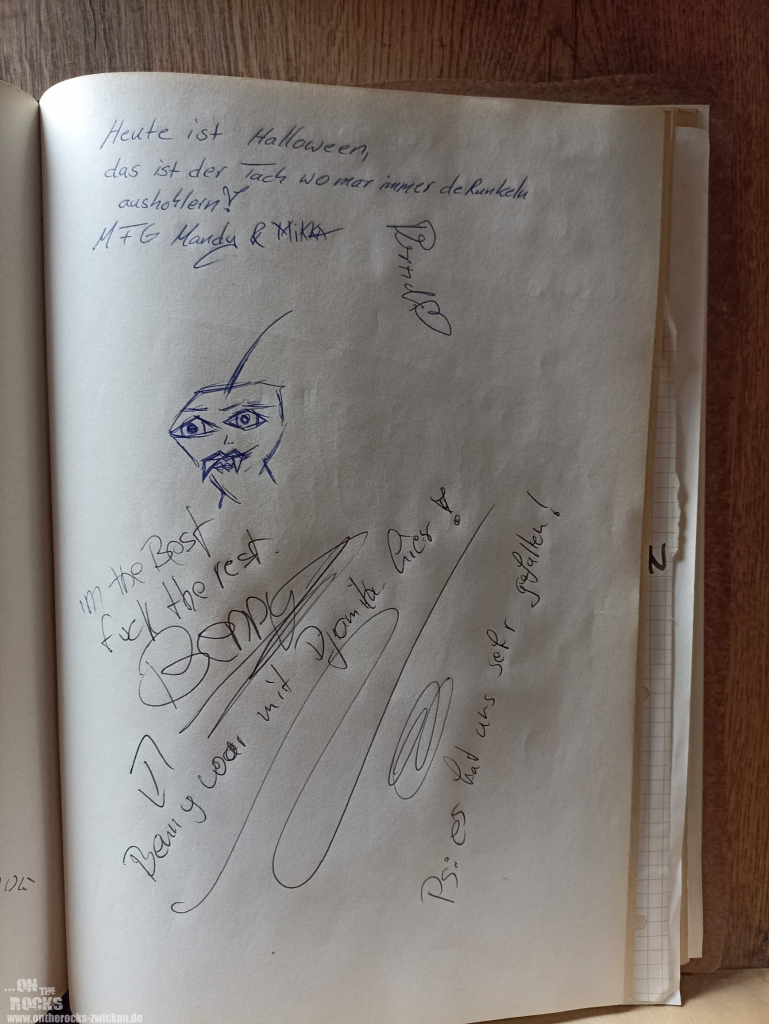 Heute ist Halloween,
das ist der Tach wo mar immer de Runkeln
aushohlern!
MFG Mandy & MiKA
im the Best
fuck the rest.
BENNY
Benny war mit hier!
Ps: es hat uns sehr gefallen!
N
...ON
THE
ROCKS
www.ontherocks-zwickau.de